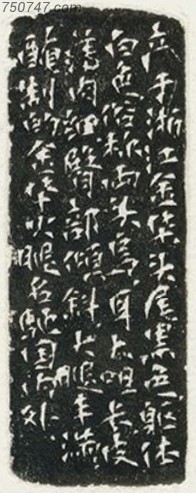 750747.com
产于浙江金华头尾黑色躯体
白色俗称两头乌耳大嘴长皮
薄肉细臀部倾斜大腿丰满
醃制的金华火腿名驰国内外